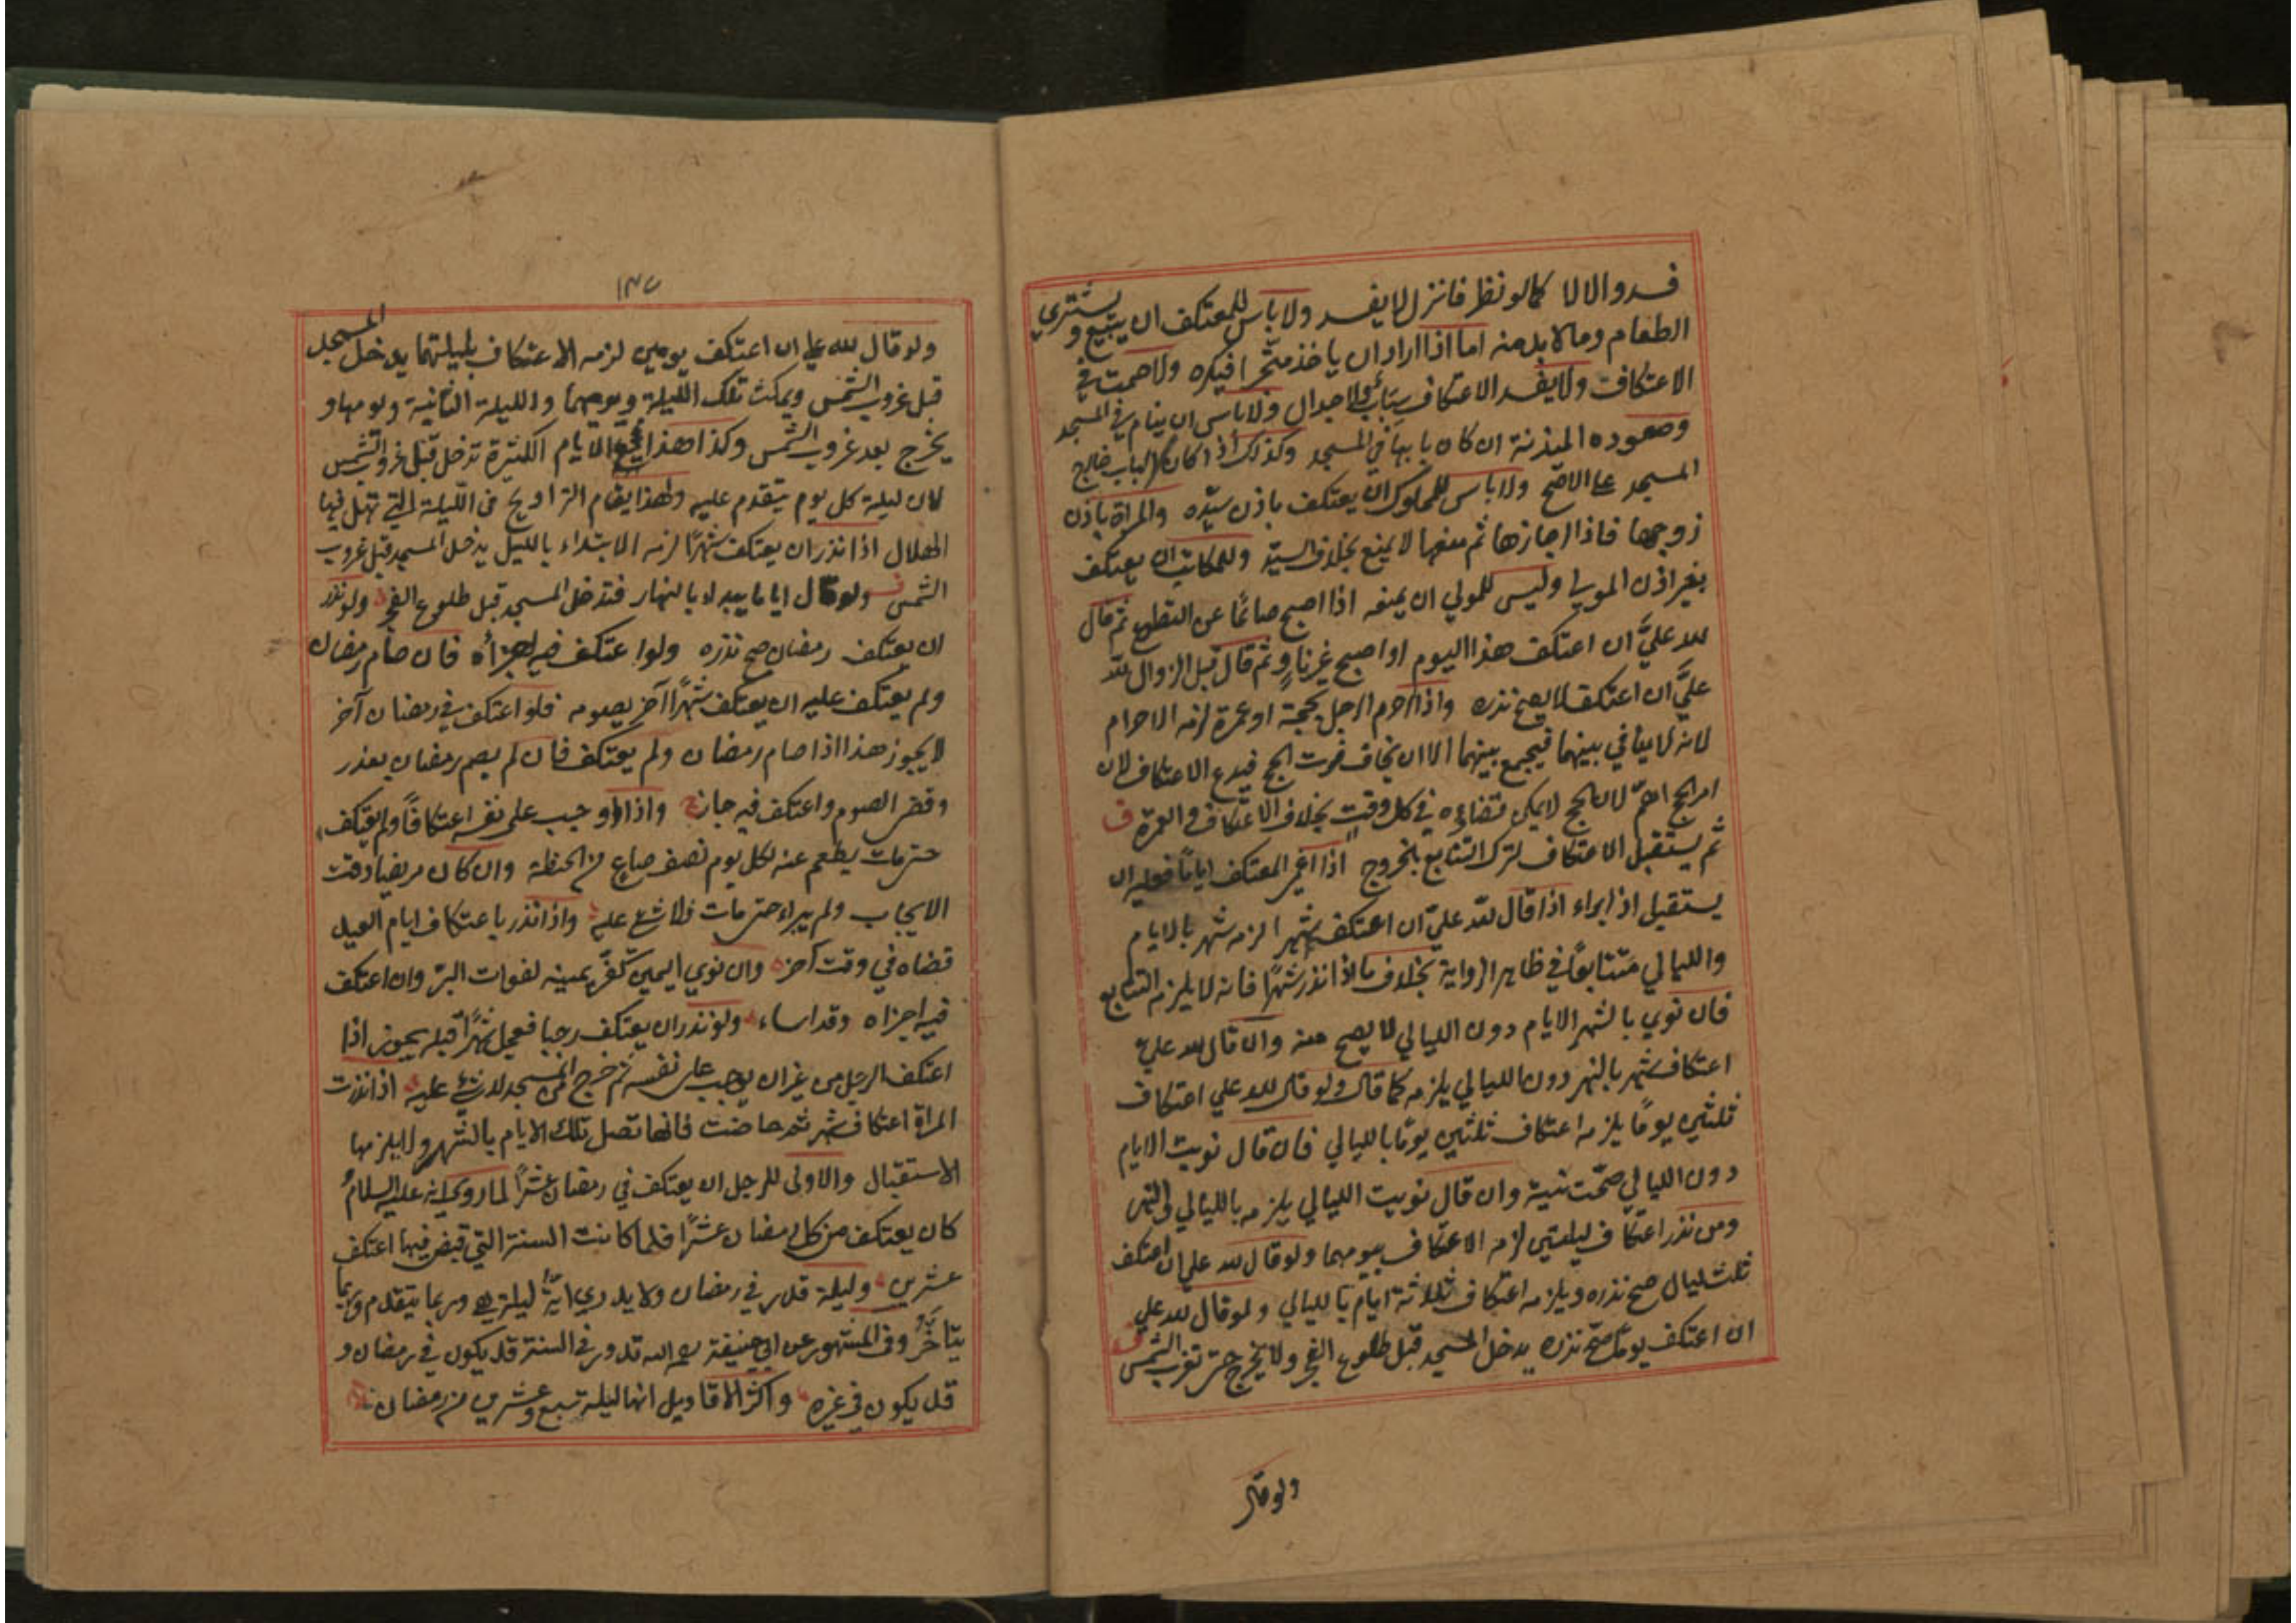 فسد والا لا كما لو نظر فانزل لا يفسد ولا باس للمعتكف ان يبيع و يشتري
الطعام وما لا بد منه اما اذا اراد ان ياخذ متجرا فيكره ولا صمت في
الاعتكاف ولا يفسد الاعتكاف سباب ولا جدال ولا باس ان ينام في المسجد
وصعوده المئذنة ان كان بابها في المسجد وكذلك اذا كان الباب خارج
المسجد على الاصح ولا باس للمملوك ان يعتكف باذن سيّده والمراة باذن
زوجها فاذا اجازها ثم منعها لا يمنع بخلاف السيّد وللمكاتب ان يعتكف
بغير اذن المولي وليس للمولي ان يمنعه اذا اصبح صائمًا عن التطوع ثم قال
لله عليَّ ان اعتكف هذا اليوم او اصبح غير ناوٍ ثم قال قبل الزوال لله
عليَّ ان اعتكف لا يصح نذره واذا احرم الرجل بحجة او عمرة لزمه الاحرام
لانه لا ينافي بينهما فيجمع بينهما الا ان يخاف فوت الحج فيدع الاعتكاف لان
امر الحج اهمّ لان الحج لا يمكن قضاءه في كل وقت بخلاف الاعتكاف والعمرة ف
ثم يستقبل الاعتكاف لترك التتابع بالخروج اذا اغمي المعتكف ايامًا فعليه ان
يستقبل اذا براء اذا قال لله عليّ ان اعتكف شهر الزمه شهر بالايام
والليالي متتابعًا في ظاهر الرواية بخلاف ما اذا نذر شهرًا فانه لا يلزمه التتابع
فان نوي بالشهر الايام دون الليالي لا يصح منه وان قال لله علي
اعتكاف شهر بالنهر دون الليالي يلزمه كما قال ولو قال لله علي اعتكاف
ثلثين يومًا يلزمه اعتكاف ثلثين يومًا بالليالي فان قال نويت الايام
دون الليالي صحّت نية وان قال نويت الليالي يلزمه بالليالي
ومن نذر اعتكاف ليلتين لزمه الاعتكاف بيومهما ولو قال لله علي ان اعتكف
ثلث ليال صح نذره ويلزمه اعتكاف ثلاثة ايام بالليالي ولو قال لله علي
ان اعتكف يومًا صحّ نذره يدخل المسجد قبل طلوع الفجر ولا يخرج حتى تغرب الشمس ف
ولو قال
١٣٧
ولو قال لله علي ان اعتكف يومين لزمه الاعتكاف بليلتهما يدخل المسجد
قبل غروب الشمس ويمكث تلك الليلة ويومها والليلة الثانية ويومها و
يخرج بعد غروب الشمس وكذا هذا في الايام الكثيرة تدخل قبل غروب الشمس
لان ليلة كل يوم يتقدم عليه ولهذا يقام التراويح في الليلة التي تهل فيها
الهلال اذا نذر ان يعتكف شهرًا لزمه الابتداء بالليل يدخل المسجد قبل غروب
الشمس ولو قال اياما يبدء بالنهار فتدخل المسجد قبل طلوع الفجر ولو نذر
ان يعتكف رمضان صح نذره ولو اعتكف فيه اجزأه فان صام رمضان
ولم يعتكف عليه ان يعتكف شهرًا آخر بصومه فلو اعتكف في رمضان آخر
لا يجوز هذا اذا صام رمضان ولم يعتكف فان لم يصم رمضان بعذر
وقضى الصوم واعتكف فيه جاز واذا اوجب على نفسه اعتكافًا ولم يعتكف
حتى مات يطعم عنه لكل يوم نصف صاع من الحنطة وان كان مريضا وقت
الايجاب ولم يبراء حتى مات فلا شئ عليه واذا نذر باعتكاف ايام العيد
قضاه في وقت آخر وان نوي اليمين كفّر يمينه لفوات البرّ وان اعتكف
فيه اجزاه وقد اساء ولو نذر ان يعتكف رجبا فعجل شهرًا قبله يجوز اذا
اعتكف الرجل من غير ان يوجب على نفسه ثم خرج من المسجد لا شئ عليه اذا نذرت
المراة اعتكاف شهر ثم حاضت فانها تصل تلك الايام بالشهر ولا يلزمها
الاستقبال والاولى للرجل ان يعتكف في رمضان عشرًا لما روي انه عليه السلام
كان يعتكف من كل رمضان عشرًا فلما كانت السنة التي قبض فيها اعتكف
عشرين وليلة قدر في رمضان ولا يدري ايّة ليلة هي وربما يتقدم وربما
يتاخّر وفي المشهور عن ابي حنيفة رحمه الله تدور في السنة قد يكون في رمضان و
قد يكون في غيره واكثر الاقاويل انها ليلة سبع وعشرين من رمضان